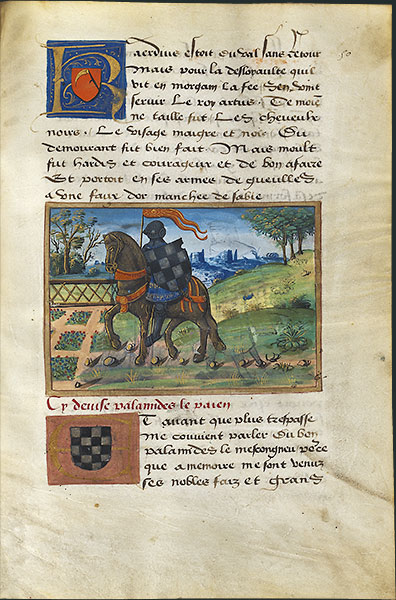 50
estoit du val sans retour
Mais pour la desloyaulte quil
vit en morgain la fee sen vont
servir Le roy artus De moie
ne taille fut Les cheveulx
noirs Le visage maigre et noir Du
demourant fut bien fait Mais moult
fut hardis et courageux et de bon afaire
Et portoit en ses armes de gueulles
a une faux dor manchee de sable
Cy devise palamides le paien
avant que plus trespasse
Me convient parler du bon
palamides le mescongneu
que a memoire me sont venuz
ses nobles faiz et grans